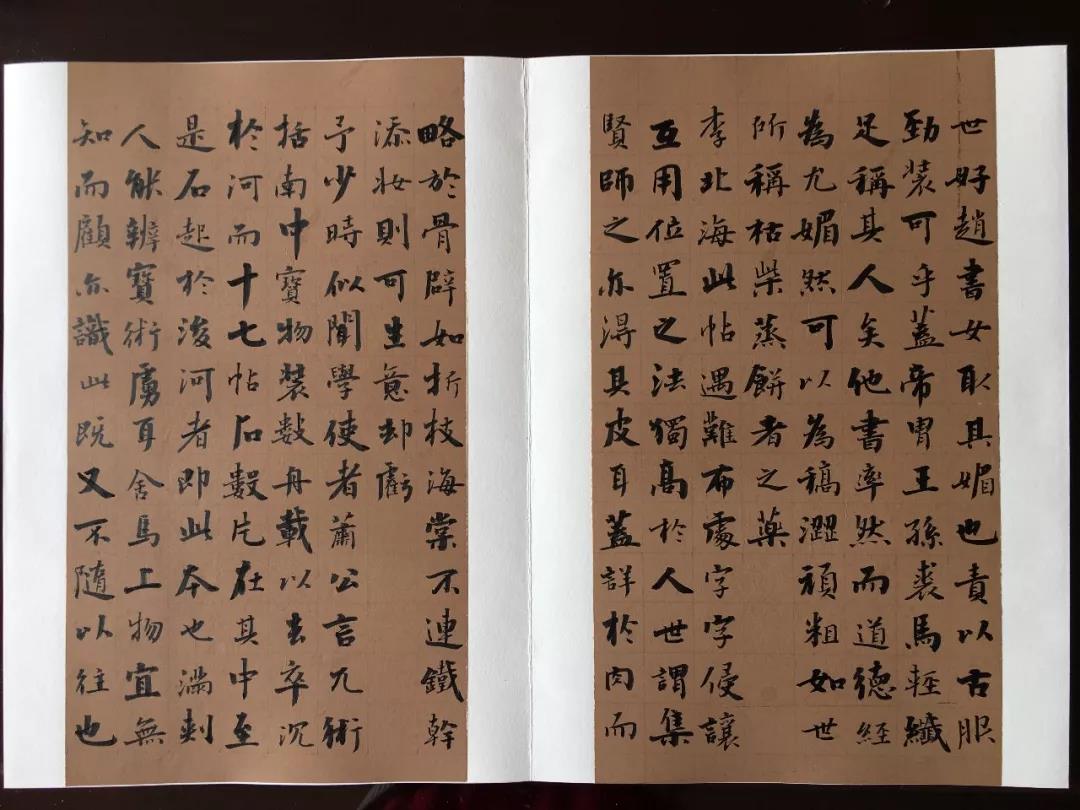 世好趙書女取其媚也責以古服
勁裝可乎蓋帝冑王孫裘馬輕纖
足稱其人矣他書率然而道德經
為尤媚然可以為稿澀頑粗如世
所稱枯柴蒸餅者之藥
李北海此帖遇難布處字字侵讓
互用位置之法獨高於人世謂集
賢師之亦得其皮耳蓋詳於肉而
略於骨辟如折枝海棠不連鐵幹
添妝則可生意却虧
予少時似聞學使者蕭公言兀術
括南中寶物裝數舟載以去卒沉
於河而十七帖石數片在其中至
是石起於浚河者即此本也滿剌
人能辨寶術虜耳舍馬上物宜無
知而顧亦識此既又不隨以往也